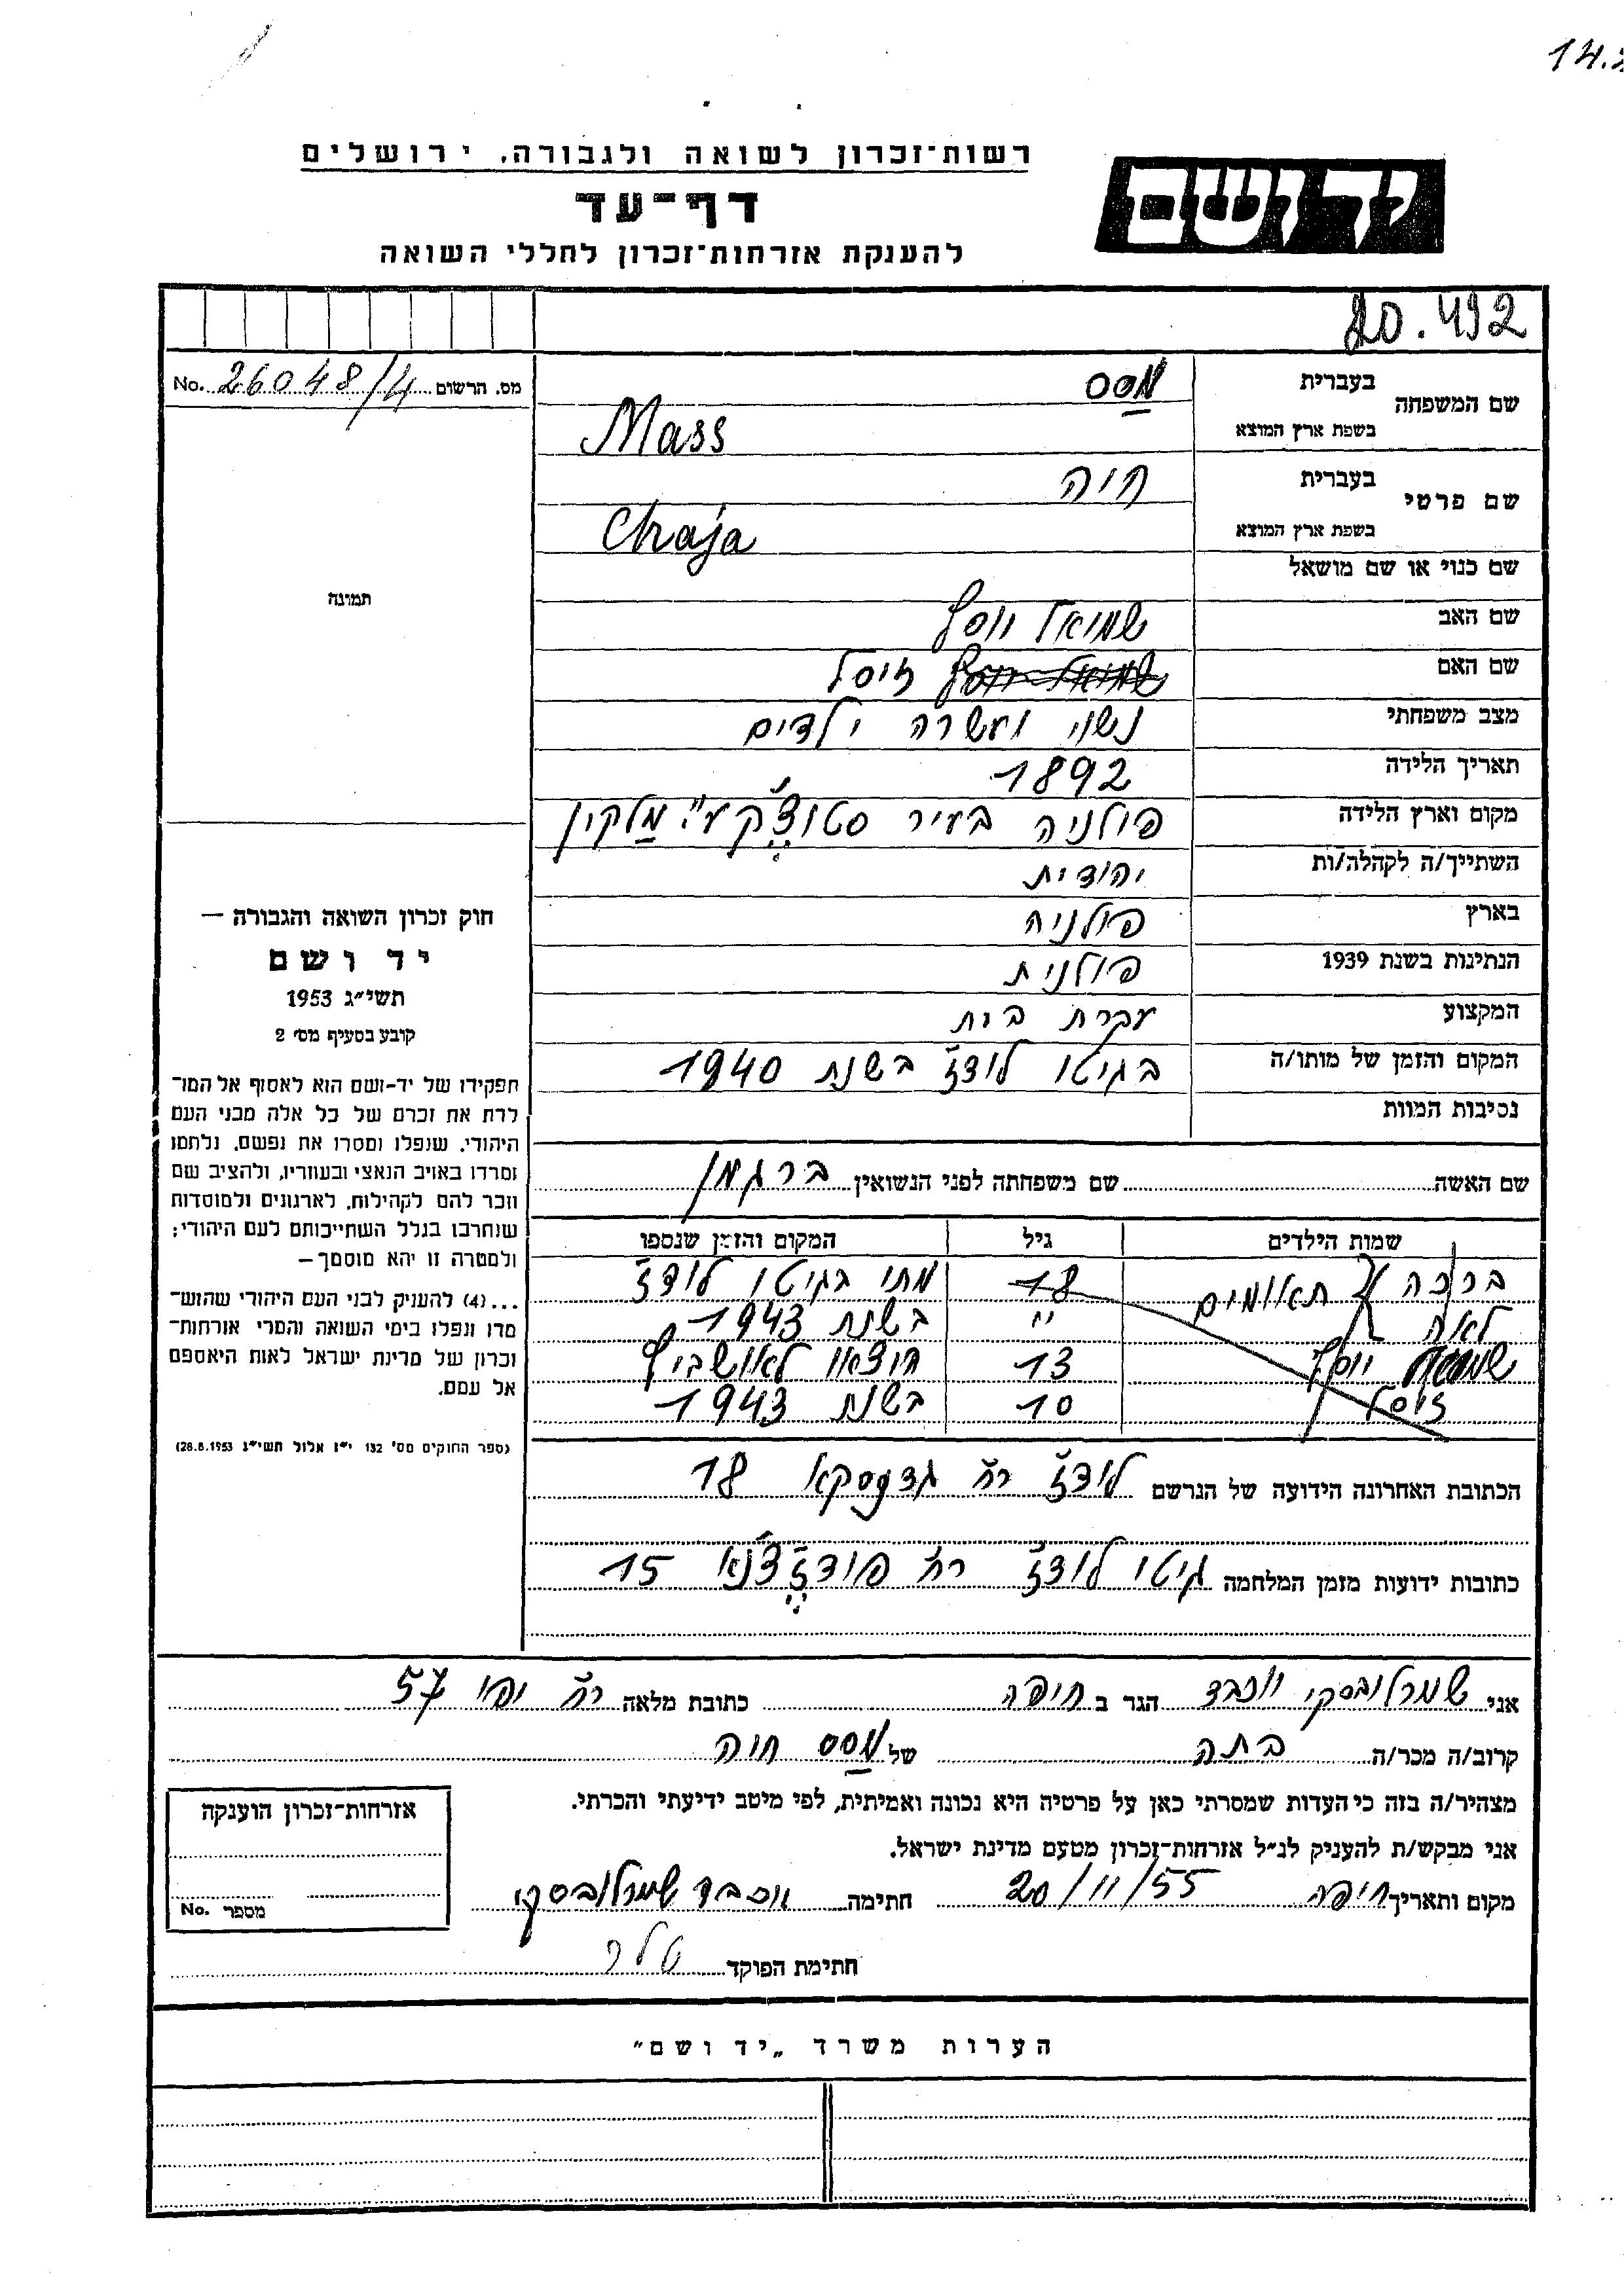 14.
רשות־זכרון לשואה ולגבורה, ירושלים
יד ושם
דף־עד
להענקת אזרחות־זכרון לחללי השואה
20.492
מס. הרשום 26048/4 No.
שם המשפחה
בעברית מסס
בשפת ארץ המוצא Mass
שם פרטי
בעברית חיה
בשפת ארץ המוצא Chaja
שם כנוי או שם מושאל
שם האב שמואל יוסף
שם האם שמואל יוסף זיסל
מצב משפחתי נשוי ועשרה ילדים
תאריך הלידה 1892
מקום וארץ הלידה פולניה בעיר סטוצ'ק ע"י מלקין
השתייך/ה לקהלה/ות יהודית
בארץ פולניה
הנתינות בשנת 1939 פולנית
המקצוע עקרת בית
המקום והזמן של מותו/ה בגיטו לודז בשנת 1940
נסיבות המוות
שם האשה שם משפחתה לפני הנשואין ברגמן
שמות הילדים גיל המקום והזמן שנספו
ברכה תאומים 18 מתו בגיטו לודז
לאה " בשנת 1943
יוסף 13 הוצאו לאושביץ
זיסל 10 בשנת 1943
הכתובת האחרונה הידועה של הנרשם לודז רח' גדנסקא 18
כתובות ידועות מזמן המלחמה גיטו לודז רח' 15
תמונה
חוק זכרון השואה והגבורה —
יד ושם
תשי״ג 1953
קובע בסעיף מס׳ 2
תפקידו של יד-ושם הוא לאסוף אל המו־
לדת את זכרם של כל אלה מבני העם
היהודי, שנפלו ומסרו את נפשם, נלחמו
ומרדו באויב הנאצי ובעוזריו, ולהציב שם
וזכר להם לקהילות, לארגונים ולמוסדות
שנחרבו בגלל השתייכותם לעם היהודי;
ולמטרה זו יהא מוסמך—
...(4) להעניק לבני העם היהודי שהוש־
מדו ונפלו בימי השואה והמרי אזרחות־
זכרון של מדינת ישראל לאות היאספם
אל עמם.
(ספר החוקים מס׳ 132 י״ז אלול תשי״ג 28.8.1953)
אני שמרלובסקי יוכבד הגר ב חיפה כתובת מלאה רח' יפו 57
קרוב/ה מכר/ה בתה של מסס חיה
מצהיר/ה בזה כי העדות שמסרתי כאן על פרטיה היא נכונה ואמיתית, לפי מיטב ידיעתי והכרתי.
אני מבקש/ת להעניק לנ״ל אזרחות־זכרון מטעם מדינת ישראל.
מקום ותאריך חיפה 20/11/55 חתימה יוכבד שמרלובסקי
חתימת הפוקד
אזרחות־זכרון הוענקה
מספר No.
הערות משרד „יד ושם״